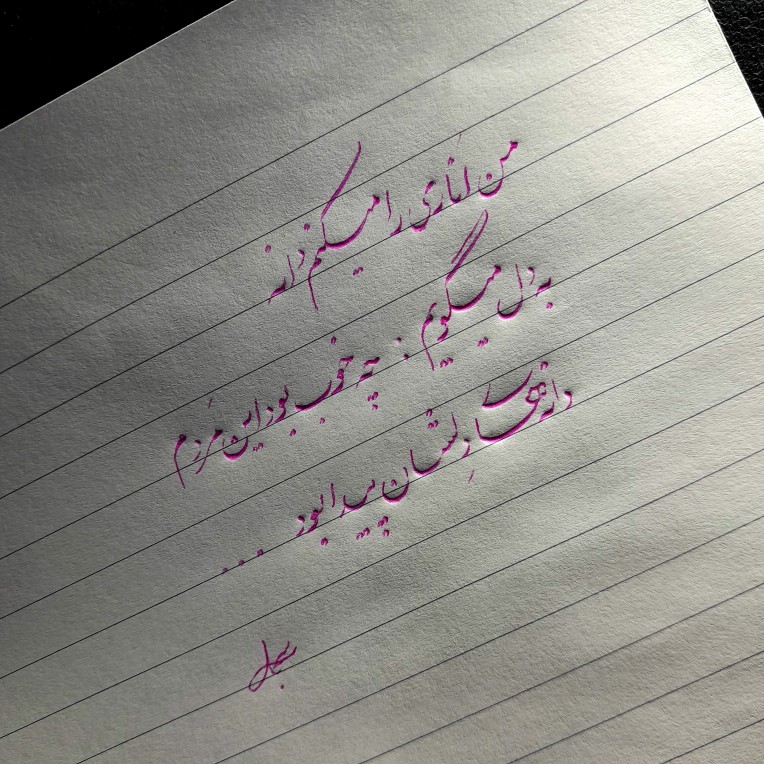 من اناری را میکنم دانه
به دل میگویم : چه خوب بود این مردم
دانه های دلشان پیدا بود ...